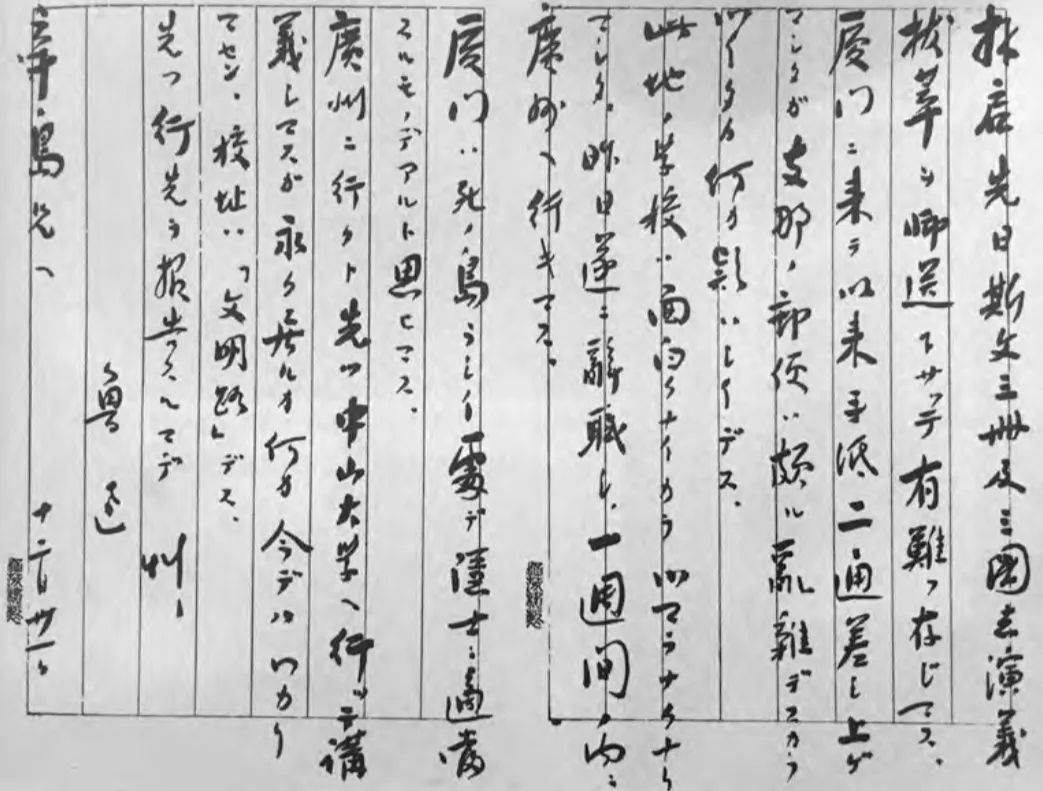 拝啓 先日斯文三冊及三國志演義
抜萃ヲ御送下サッテ有難ク存じマス、
厦門ニ来テ以来手紙二通差し上ゲ
マシタガ支那ノ郵便ハ頗ル亂雜デスカラ
ツイタカ何カ疑ハしイデス、
此地ノ学校ハ面白クナイカラツマラナクナリ
マシタ、昨日遂ニ辭職し、一週間ノ内ニ
廣州ヘ行キマス。
厦門ハ死ノ島ラしイ處デ隱士ニ適當
スルモノデアルト思ヒマス、
廣州ニ行クト先ツ中山大学ヘ行ッテ講
義しマスガ永ク居ルカ何カ今デハワカリ
マセン、校址ハ「文明路」デス、
先ツ行先ヲ報告スルマデ 艸々
魯迅
辛島兄ヘ 十二月卅一日